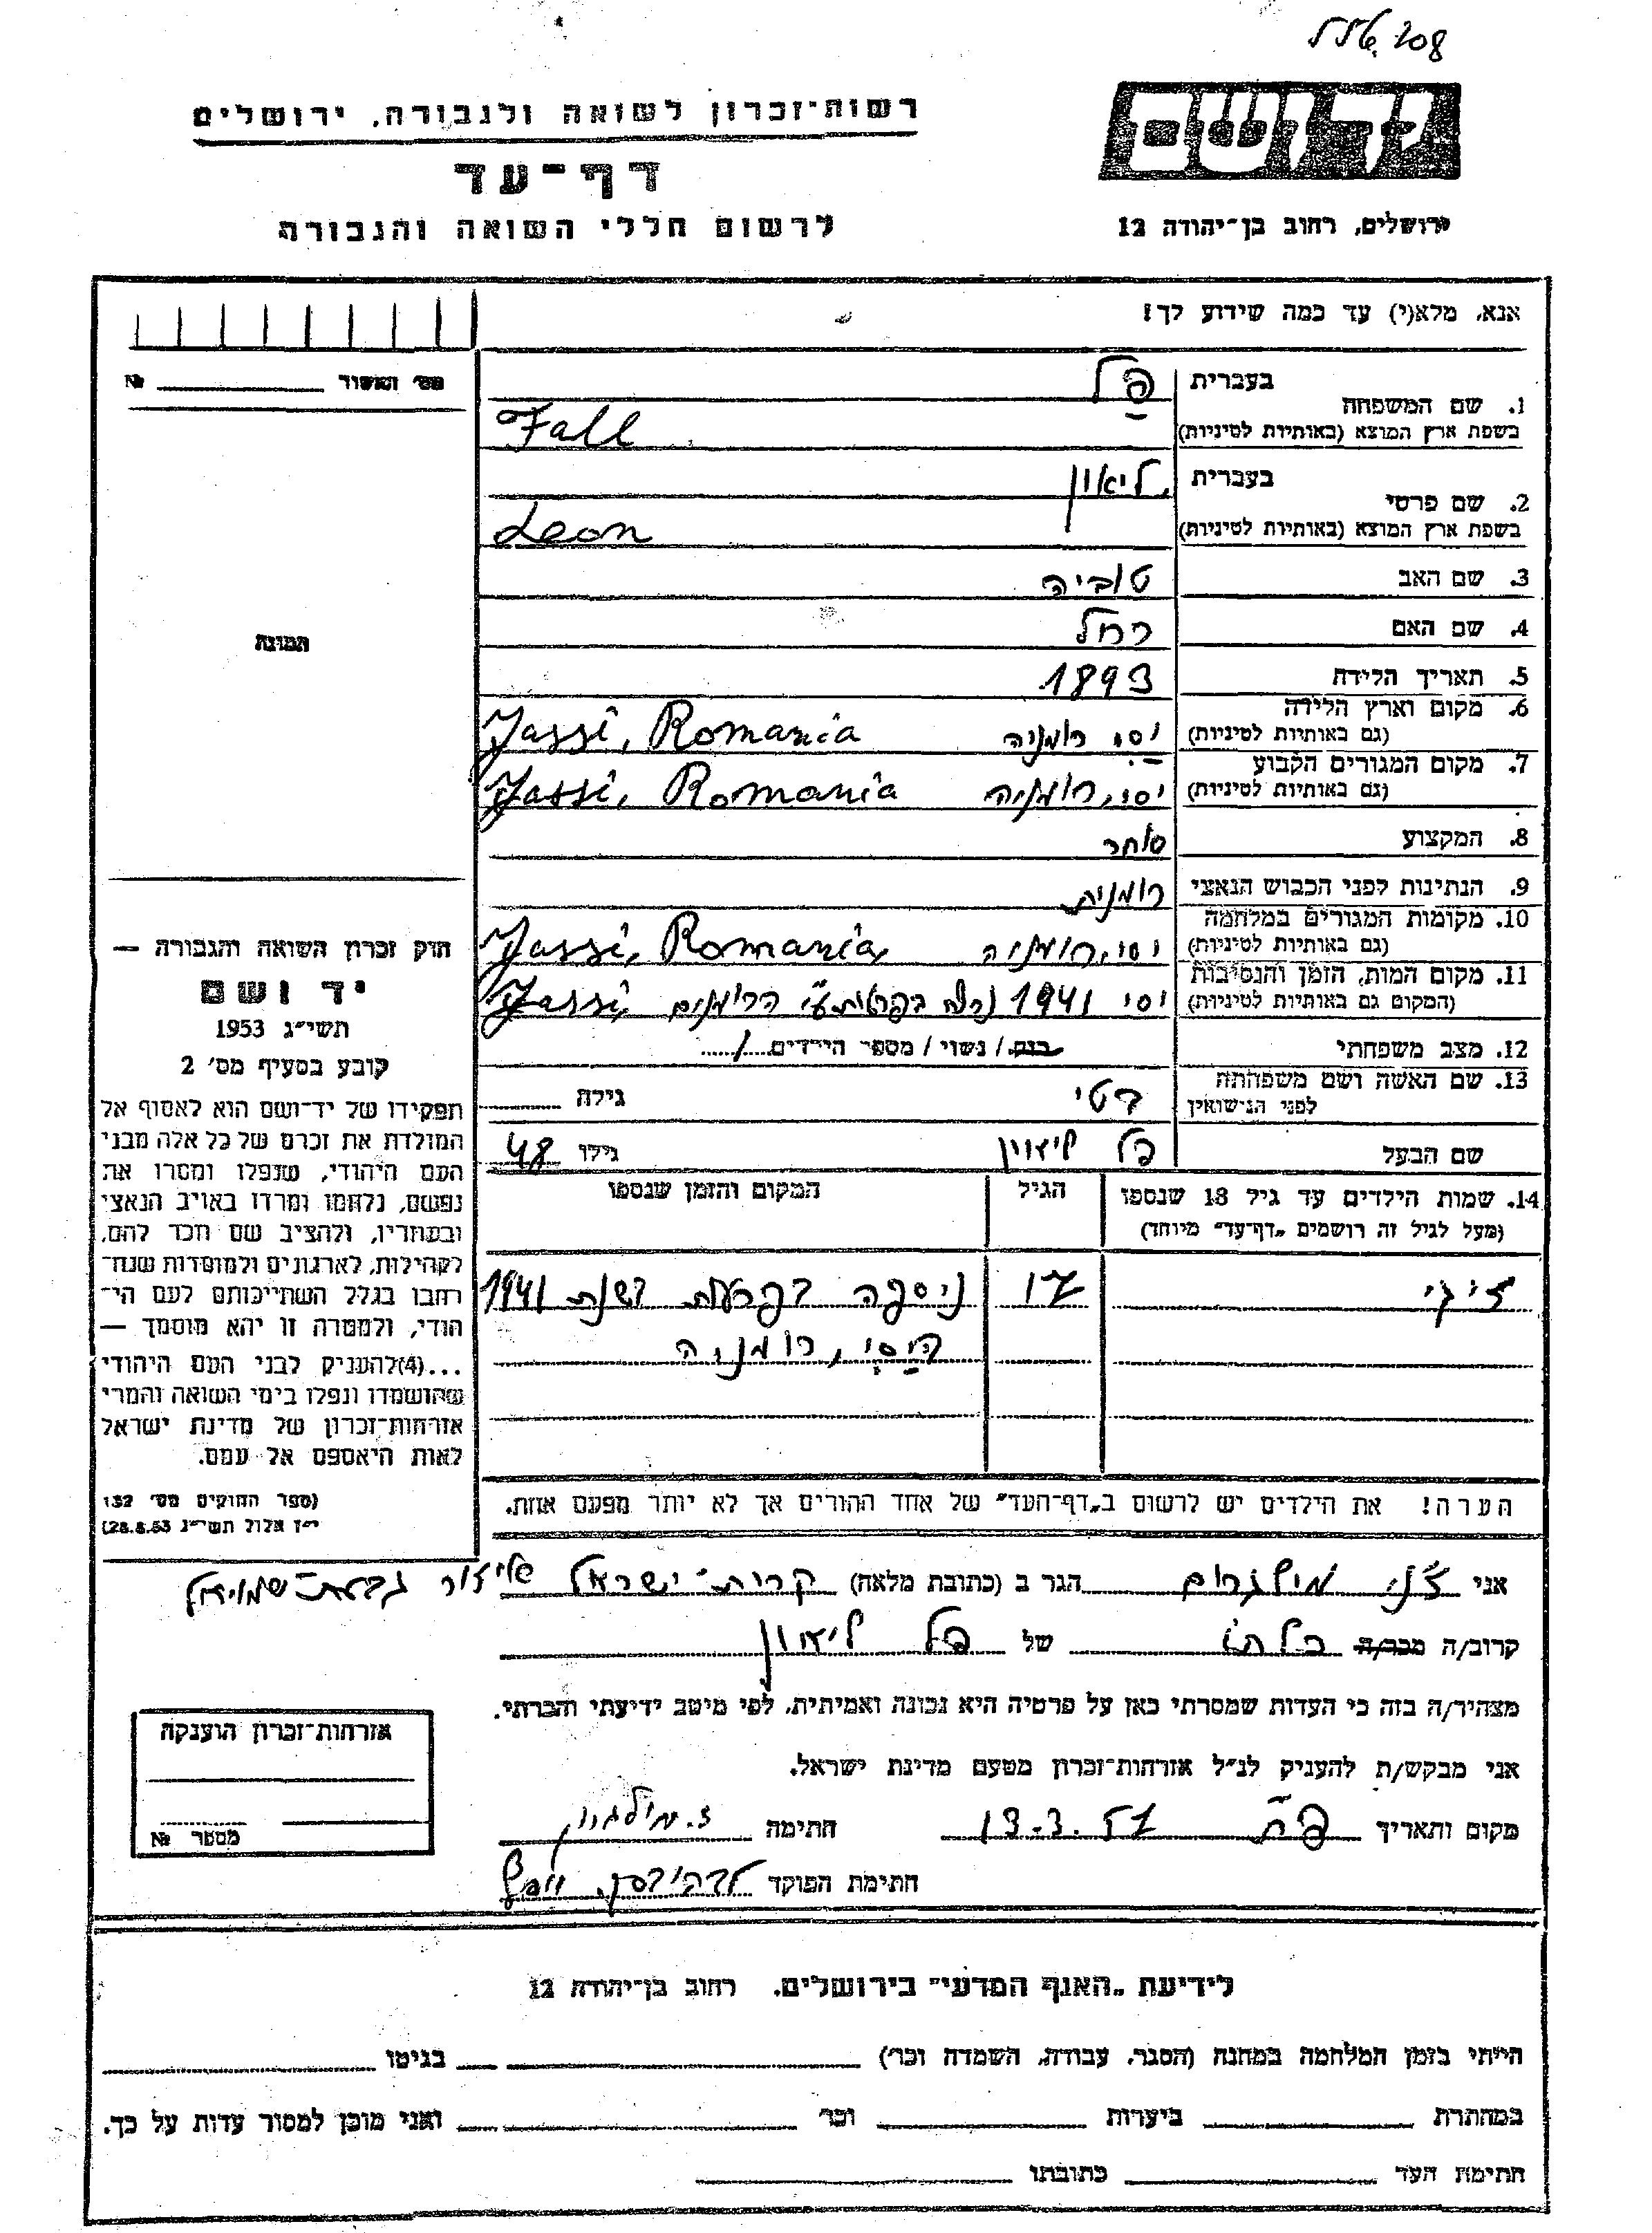 208
יד ושם
ירושלים, רחוב בן־יהודה 12
רשות־זכרון לשואה ולגבורה, ירושלים
דף־עד
לרשום חללי השואה והגבורה
אנא, מלא(י) עד כמה שידוע לך!
מס׳ האשור №
1. שם המשפחה
בעברית פַל
בשפת ארץ המוצא (באותיות לטיניות) Fall
2. שם פרטי
בעברית ליאון
בשפת ארץ המוצא (באותיות לטיניות) Leon
3. שם האב טוביה
4. שם האם רחל
5. תאריך הלידה 1893
6. מקום וארץ הלידה
(גם באותיות לטיניות) יסי רומניה Jassi, Romania
7. מקום המגורים הקבוע
(גם באותיות לטיניות) יסי, רומניה Jassi, Romania
8. המקצוע סוחר
9. הנתינות לפני הכבוש הנאצי רומנית
10. מקומות המגורים במלחמה
(גם באותיות לטיניות) יסי, רומניה Jassi, Romania
11. מקום המות, הזמן והנסיבות
(המקום גם באותיות לטיניות) יסי 1941 ע״י הרומנים Jassi
12. מצב משפחתי רווק / נשוי / מספר הילדים 1
13. שם האשה ושם משפחתה
לפני הנישואין בטי גילה
שם הבעל פל ליאון גילו 48
14. שמות הילדים עד גיל 18 שנספו הגיל המקום והזמן שנספו
(מעל לגיל זה רושמים „דף־עד״ מיוחד)
17 ניספה בפרעות בשנת 1941
ביסי, רומניה
הערה! את הילדים יש לרשום ב„דף־העד״ של אחד ההורים אך לא יותר מפעם אחת.
התמונה
חוק זכרון השואה והגבורה —
יד ושם
תשי״ג 1953
קובע בסעיף מס׳ 2
תפקידו של יד־ושם הוא לאסוף אל
המולדת את זכרם של כל אלה מבני
העם היהודי, שנפלו ומסרו את
נפשם, נלחמו ומרדו באויב הנאצי
ובעוזריו, ולהציב שם וזכר להם,
לקהילות, לארגונים ולמוסדות שנח־
רבו בגלל השתייכותם לעם הי־
הודי, ולמטרה זו יהא מוסמך —
...(4) להעניק לבני העם היהודי
שהושמדו ונפלו בימי השואה והמרי
אזרחות־זכרון של מדינת ישראל
לאות היאספם אל עמם.
(ספר החוקים מס׳ 132
י״ז אלול תשי״ג 28.8.53)
אני מילגרום הגר ב (כתובת מלאה) קרית־ישראל שליד גבעת־שמואל
קרוב/ה מכר/ה כלתו של פל ליאון
מצהיר/ה בזה כי העדות שמסרתי כאן על פרטיה היא נכונה ואמיתית, לפי מיטב ידיעתי והכרתי.
אני מבקש/ת להעניק לנ״ל אזרחות־זכרון מטעם מדינת ישראל.
מקום ותאריך פ״ת 13.3.57 חתימה
חתימת הפוקד
אזרחות־זכרון הוענקה
מספר №
לידיעת „האגף המדעי״ בירושלים, רחוב בן־יהודה 12
הייתי בזמן המלחמה במחנה (הסגר, עבודה, השמדה וכו׳) בגיטו
במחתרת ביערות וכו׳ ואני מוכן למסור עדות על כך.
חתימת העד כתובתו